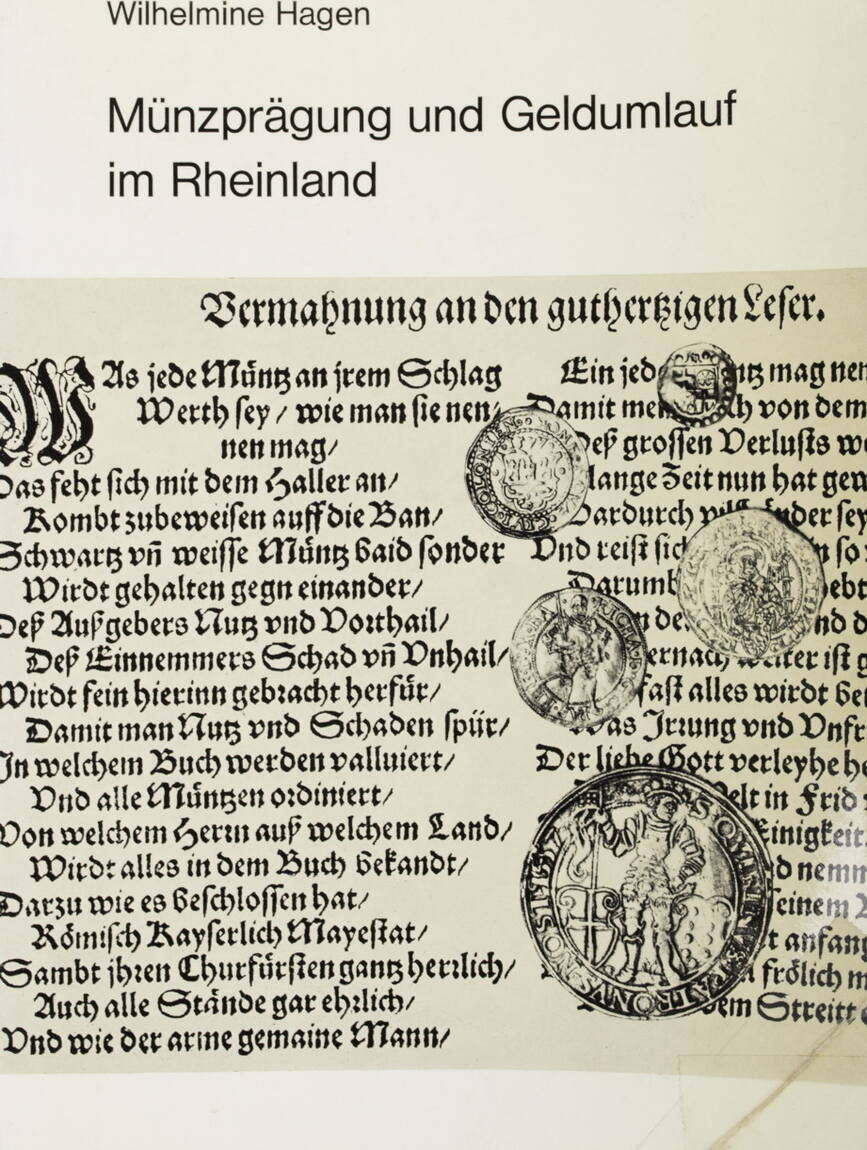 Wilhelmine Hagen
Münzprägung und Geldumlauf
im Rheinland
Vermahnung an den guthertzigen Leser.
WAs jede Müntz an jrem Schlag
Werth sey / wie man sie nen⸗
nen mag/
Das feht sich mit dem Haller an/
Kombt zubeweisen auff die Ban/
Schwartz vñ weisse Müntz baid sonder
Wirdt gehalten gegn einander/
Deß Außgebers Nutz vnd Vorthail/
Deß Einnemmers Schad vñ Vnhail/
Wirdt fein hierinn gebracht herfür/
Damit man Nutz vnd Schaden spür/
In welchem Buch werden valluiert/
Vnd alle Müntzen ordiniert/
Von welchem Herrn auß welchem Land/
Wirdt alles in dem Buch bekandt/
Darzu wie es beschlossen hat/
Römisch Kayserlich Mayestat/
Sambt jhren Churfürsten gantz herrlich/
Auch alle Stände gar ehrlich/
Vnd wie der arme gemaine Mann/
Ein jed mag
Damit von dem
Deß grossen Verlusts
lange Zeit nun hat
Dardurch
Vnd reist so
Darumb
ist
fast alles wirdt
Was Irrung vnd
Der liebe Gott verleyhe
in Frid
Einigkeit
seinem
frölich
Streitt